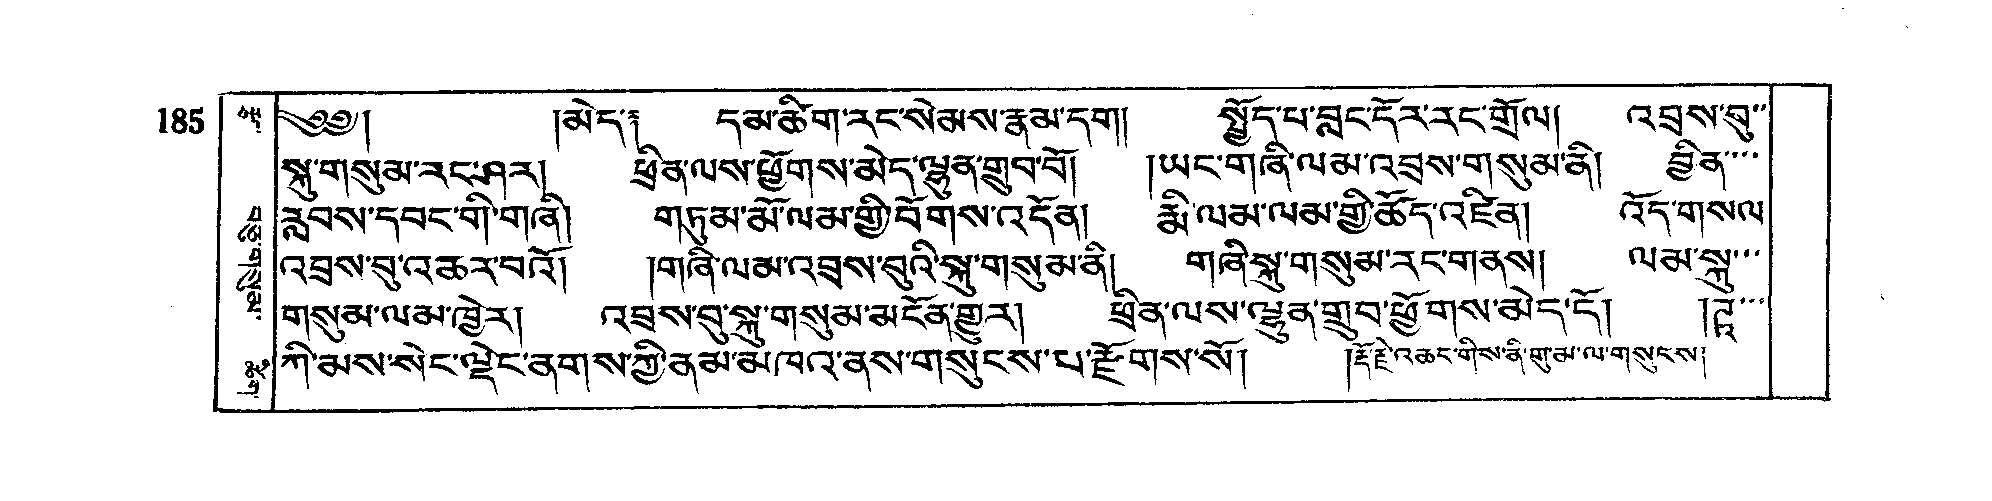 185
༄༅། །མེད་༔ དམ་ཚིག་རང་སེམས་རྣམ་དག། སྤྱོད་པ་བླང་དོར་རང་གྲོལ། འབྲས་བུ་
སྐུ་གསུམ་རང་ཤར། ཕྲིན་ལས་ཕྱོགས་མེད་ལྷུན་གྲུབ་བོ། །ཡང་གཞི་ལམ་འབྲས་གསུམ་ནི། བྱིན་
རླབས་དབང་གི་གཞི། གཏུམ་མོ་ལམ་གྱི་བོགས་འདོན། རྨི་ལམ་ལམ་གྱི་ཚོད་འཛིན། འོད་གསལ
འབྲས་བུ་འཆར་བའོ། །གཞི་ལམ་འབྲས་བུའི་སྐུ་གསུམ་ནི། གཞི་སྐུ་གསུམ་རང་གནས། ལམ་སྐུ་
གསུམ་ལམ་ཁྱེར། འབྲས་བུ་སྐུ་གསུམ་མངོན་གྱུར། ཕྲིན་ལས་ལྷུན་གྲུབ་ཕྱོགས་མེད་དོ། །ཌཱ་
ཀི་མས་སེང་ལྡེང་ནགས་ཀྱི་ནམ་མཁའ་ནས་གསུངས་པ་རྫོགས་སོ། །རྡོ་རྗེ་འཆང་གིས་ནི་གུ་མ་ལ་གསུངས།